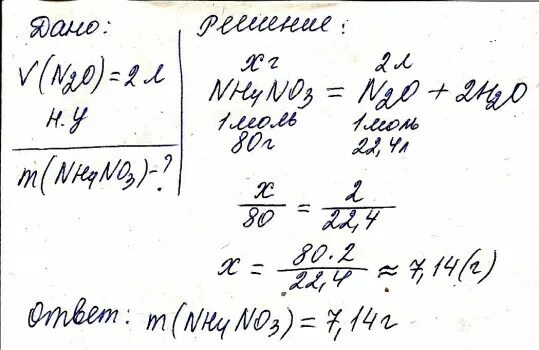 Дано:
V(N2O)=2л
н.у
m(NH4NO3)-?
Решение:
xг 2л
NH4NO3 = N2O + 2H2O
1моль 1моль
80г 22,4л
x/80 = 2/22,4
x = 80·2/22,4 ≈ 7,14(г)
Ответ: m(NH4NO3) = 7,14г